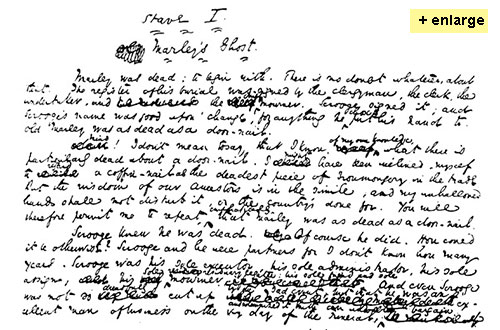 + enlarge
Stave I.
Marley's Ghost.
Marley was dead; to begin with. There is no doubt whatever, about
that. The register of his burial was signed by the clergyman, the clerk, the
undertaker, and the chief mourner. Scrooge signed it; and
Scrooge's name was good upon 'Change, for anything he put his hand to.
Old Marley was as dead as a door-nail.
Mind! I don't mean to say that I know, of my own knowledge, what there is
particularly dead about a door-nail. I might have been inclined, myself
to a coffin-nail as the deadest piece of ironmongery in the trade
But the wisdom of our ancestors is in the simile; and my unhallowed
hands shall not disturb it, or the country's done for. You will
therefore permit me to repeat, emphatically that Marley was as dead as a door-nail.
Scrooge knew he was dead. Of course he did. How could
it be otherwise? Scrooge and he were partners for I don't know how many
years. Scrooge was his sole executor, his sole administrator, his sole
assign, his sole mourner. And even Scrooge
was not so cut up
ex-
cellent man of business on the very day of the funeral,